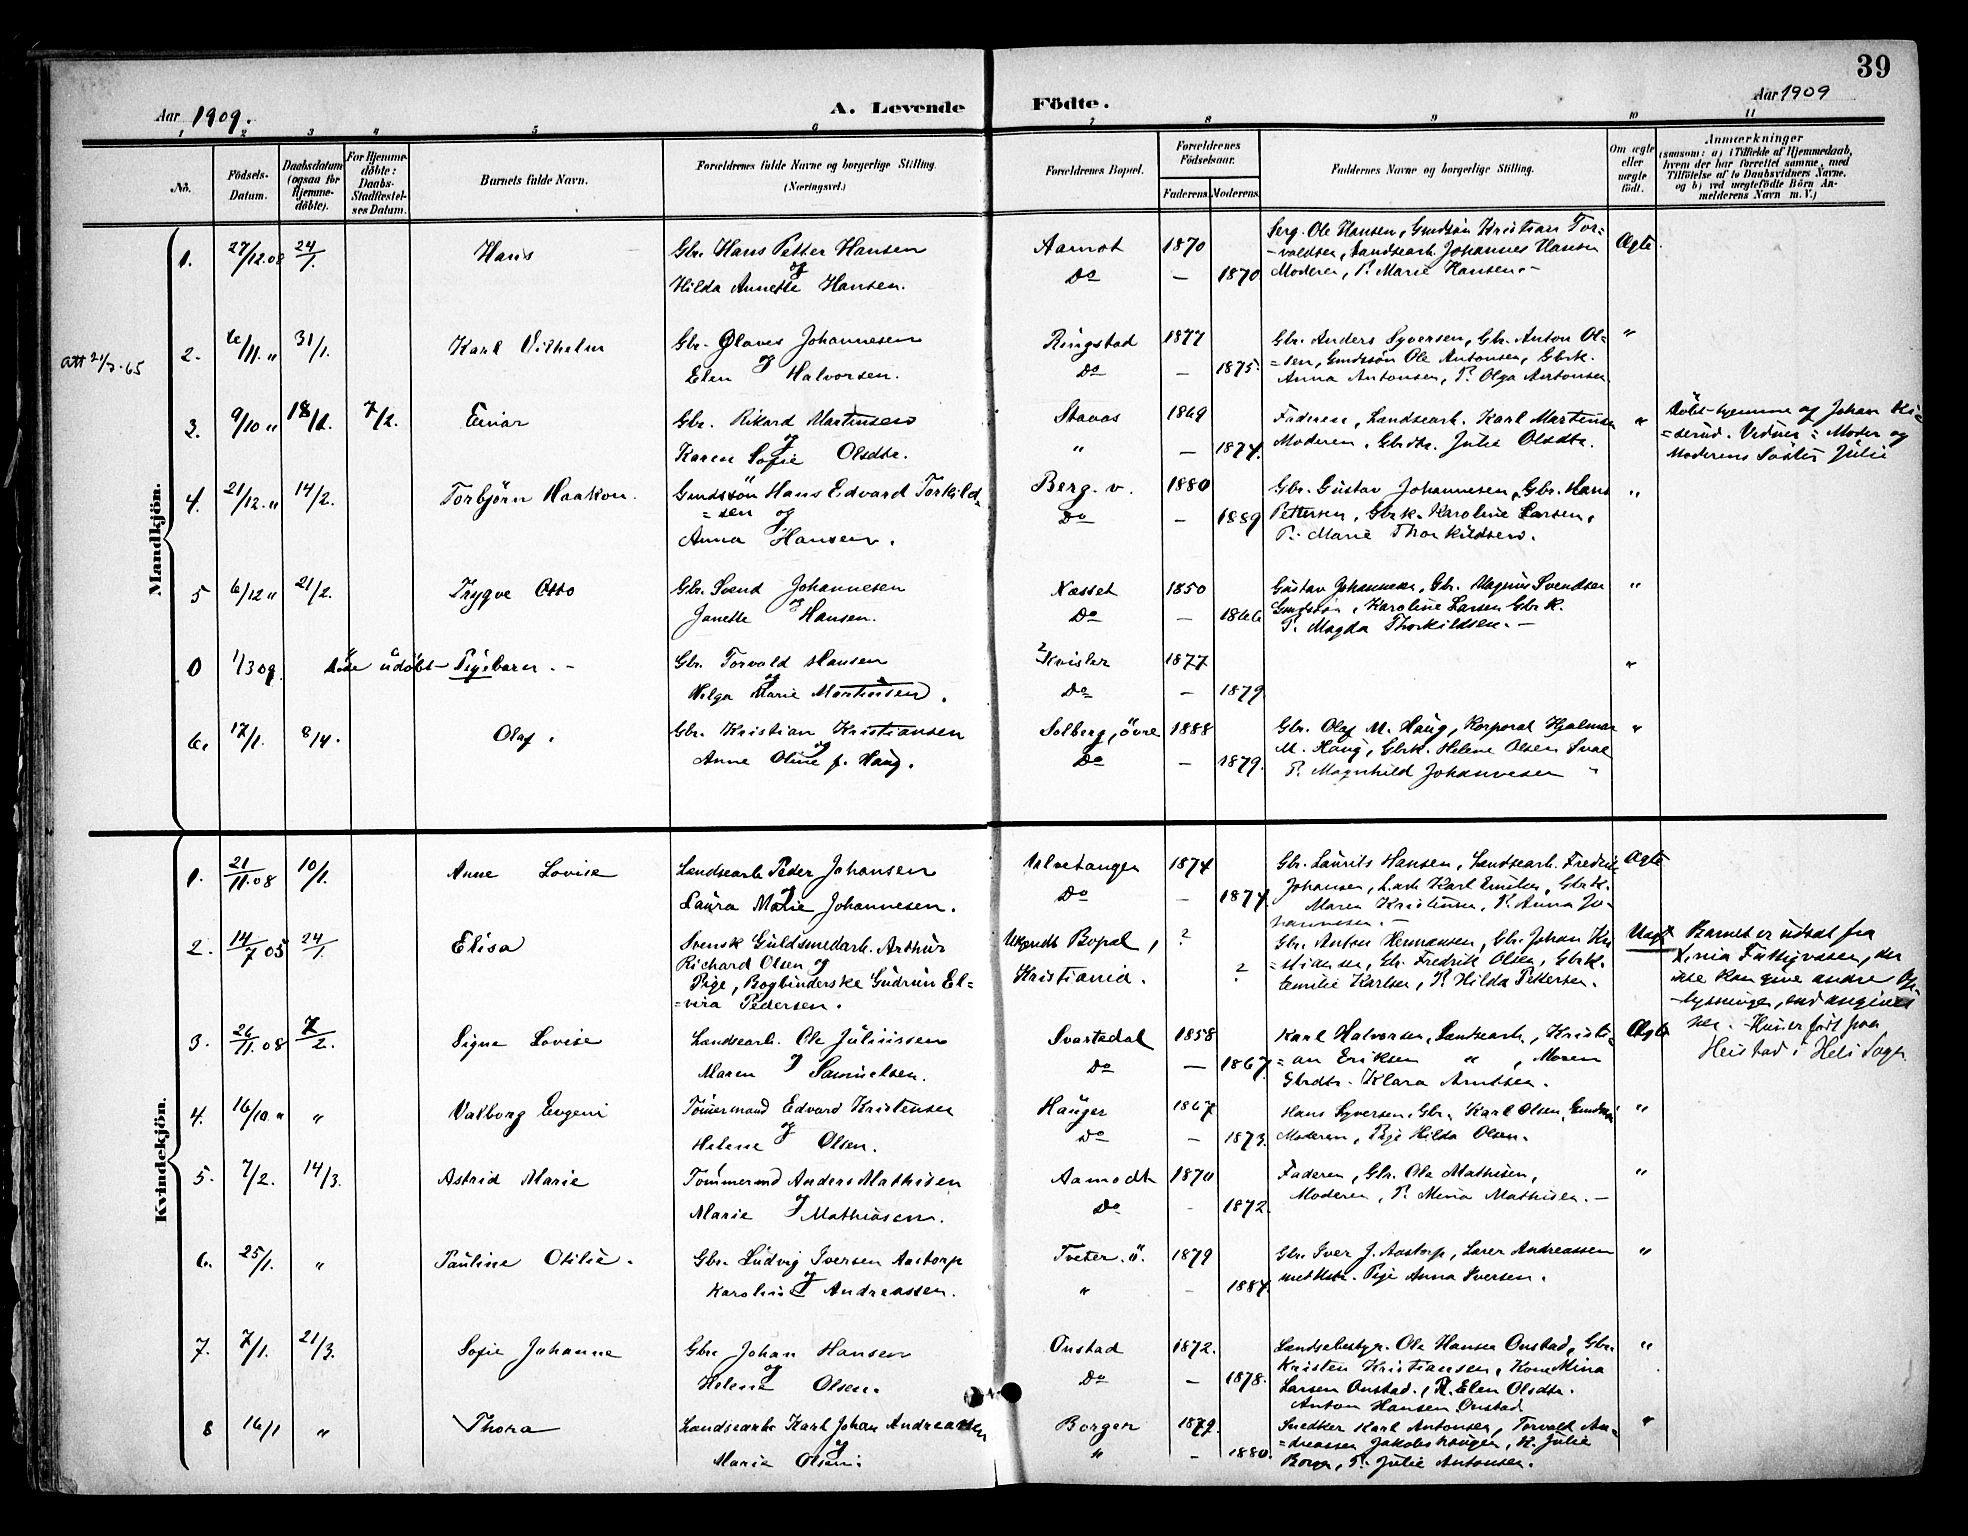 39
Aar 1909.
A. Levende Födte.
Aar 1909
1 2 3 4 5 6 7 8 9 10 11
No.
Födsels-Datum.
Daabsdatum (ogsaa for Hjemmedöbte).
For Hjemmedöbte: Daabs-Stadfestelses Datum.
Barnets fulde Navn.
Forældrenes fulde Navne og borgerlige Stilling. (Næringsvei.)
Forældrenes Bopæl.
Forældrenes Födselsaar.
Faderens. Moderens.
Faddernes Navne og borgerlige Stilling.
Om ægte eller uægte födt.
Anmærkninger
(saasom: a) i Tilfælde af Hjemmedaab, hvem der har forrettet samme, med Tilföielse af to Daabsvidners Navne, og b) ved uægtefödte Börn Anmelderens Navn m. V.)
Mandkjön.
1. 27/12.08 24/1. Hans Gbr. Hans Petter Hansen Aamot 1870 Serg. Ole Hansen, Gmdsön Kristian Tor- Ægte
og Do — 1870 =valdsen, Landsearb. Johannes Hansen
Hilda Annette Hansen. Moderen, P. Marie Hansen.-
att 21/7-65
2. 6/11. " 31/1. Karl Vilhelm Gbr. Olaves Johannesen Ringstad 1877 Gbr. Anders Syversen, Gbr. Anton Ol- "
og Do — 1875. =sen, Gmdssön Ole Antonsen, Gbrk.
Elen Halvorsen. Anna Antonsen, P. Olga Antonsen
3. 9/10 " 18/1. 7/2. Einar Gbr. Rikard Martinsen Stavas 1869 Faderen, Landsearb. Karl Martinsen " Döbt hjemme af Johan
og " — 1874. Moderen, Gbrdtr. Julie Olsdtr. =serud. Vidner: Moder og
Karen Sofie Olsdtr. Moderens Söster Julie
4. 21/12. " 14/2. Torbjörn Haakon. Gmdssön Hans Edvard Torkild- Berg. v. 1880 Gbr. Gustav Johannesen, Gbr. Hans "
=sen og Do — 1889 Pettersen, Gbrk. Karoline Larsen,
Anna Hansen. P. Marie Thorkildsen.
5 6/12 " 21/2. Trygve Otto Gbr. Svend Johannesen Næsset 1850 Gustav Johannesen, Gbr. Magnus Svendsen "
og Do — 1866 Gmdssön, Karoline Larsen Gbrk.
Janette Hansen. P. Magda Thorkildsen.-
0 1/3 09. Döde udöbt Pigebarn.- Gbr. Torvald Hansen Kvisler 1877 "
og Do — 1879.
Helga Marie Martinsen.
6. 17/1. 8/4. Olaf. Gbr. Kristian Kristiansen Solberg, övre 1888 Gbr. Olaf M. Haug, Korporal Hjalmar "
og Do — 1879. M. Haug, Gbrk. Helene Olsen
Anne Oline f. Haug. P. Magnhild Johannesen
Kvindekjön.
1. 21/11.08 10/1. Anne Lovise Landsearb Peder Johansen Ulvetanger 1874 Gbr. Laurits Hansen, Landsearb. Fredrik Ægte
og Do 1874. Johansen, L.arb Karl Emilsen, Gbrk.
Laura Marie Johannesen. Maren Kristensen, P. Anna Jo-
hannesen.-
2. 14/7 05 24/1. Elisa Svensk Guldsmedarb. Arthur Ukjendt Bopæl, ? Gbr. Anton Hermansen, Gbr. Johan Kri Uægt Barnet er udsat fra
Richard Olsen og ? =stiansen, Gbr. Fredrik Olsen, Gbrk. K.nia Fattigvæsen, der
Pige, Bogbinderske Gudrun El- Kristiania. Emilie Karlsen, P. Hilda Pettersen. ikke kan give andre Op-
=vira Pedersen. =lysninger, end angivet
her. Hun er födt paa
3. 26/11.08 7/2. Signe Lovise Landsearb. Ole Juliussen Svartedal 1858 Karl Halvorsen, Landsearb, Kristi- Ægte
og Do — 1867. =an Eriksen " , Maren
Maren Samuelsen. Gbrdtr. Klara Arntsen.
4. 16/10. " " Valborg Eugeni Tömmermand Edvard Kristensen Hauger 1867 Hans Syversen, Gbr. Karl Olsen, Gmdssön "
og Do — 1873. Moderen, Pige Hilda Olsen.
Helene Olsen.
5. 7/2. 14/3. Astrid Marie Tömmermd Anders Mathisen Aamodt 1870 Faderen, Gbr. Ole Mathisen, "
og Do - 1872. Moderen, P. Mina Mathisen.-
Marie Mathiasen.
6. 25/1. " Pauline Otilie. Gbr. Ludvig Iversen Aastorp Tveter. ö. 1879 Gbr. Iver J. Aastorp, Larer Andreassen "
og " - 1884. Pige Anna Iversen.
Karoline Andreassen.
7. 7/1. 21/3. Sofie Johanne Gbr. Johan Hansen Onstad 1872. Landsebestyr. Ole Hansen Onstad, Gbr. "
og Do — 1878. Kristen Kristiansen, Kone Mina
Helene Olsen. Larsen Onstad, P. Elen Olsdtr.
Anton Hansen Onstad
8 16/1 " Thora Landsearb Karl Johan Andreassen Borgen 1879. Snedker Karl Antonsen, Torvald An- "
og " - 1880. =dreassen Jakobshaugen, K. Julie
Marie Olsen. Borge, P. Julie Antonsen.